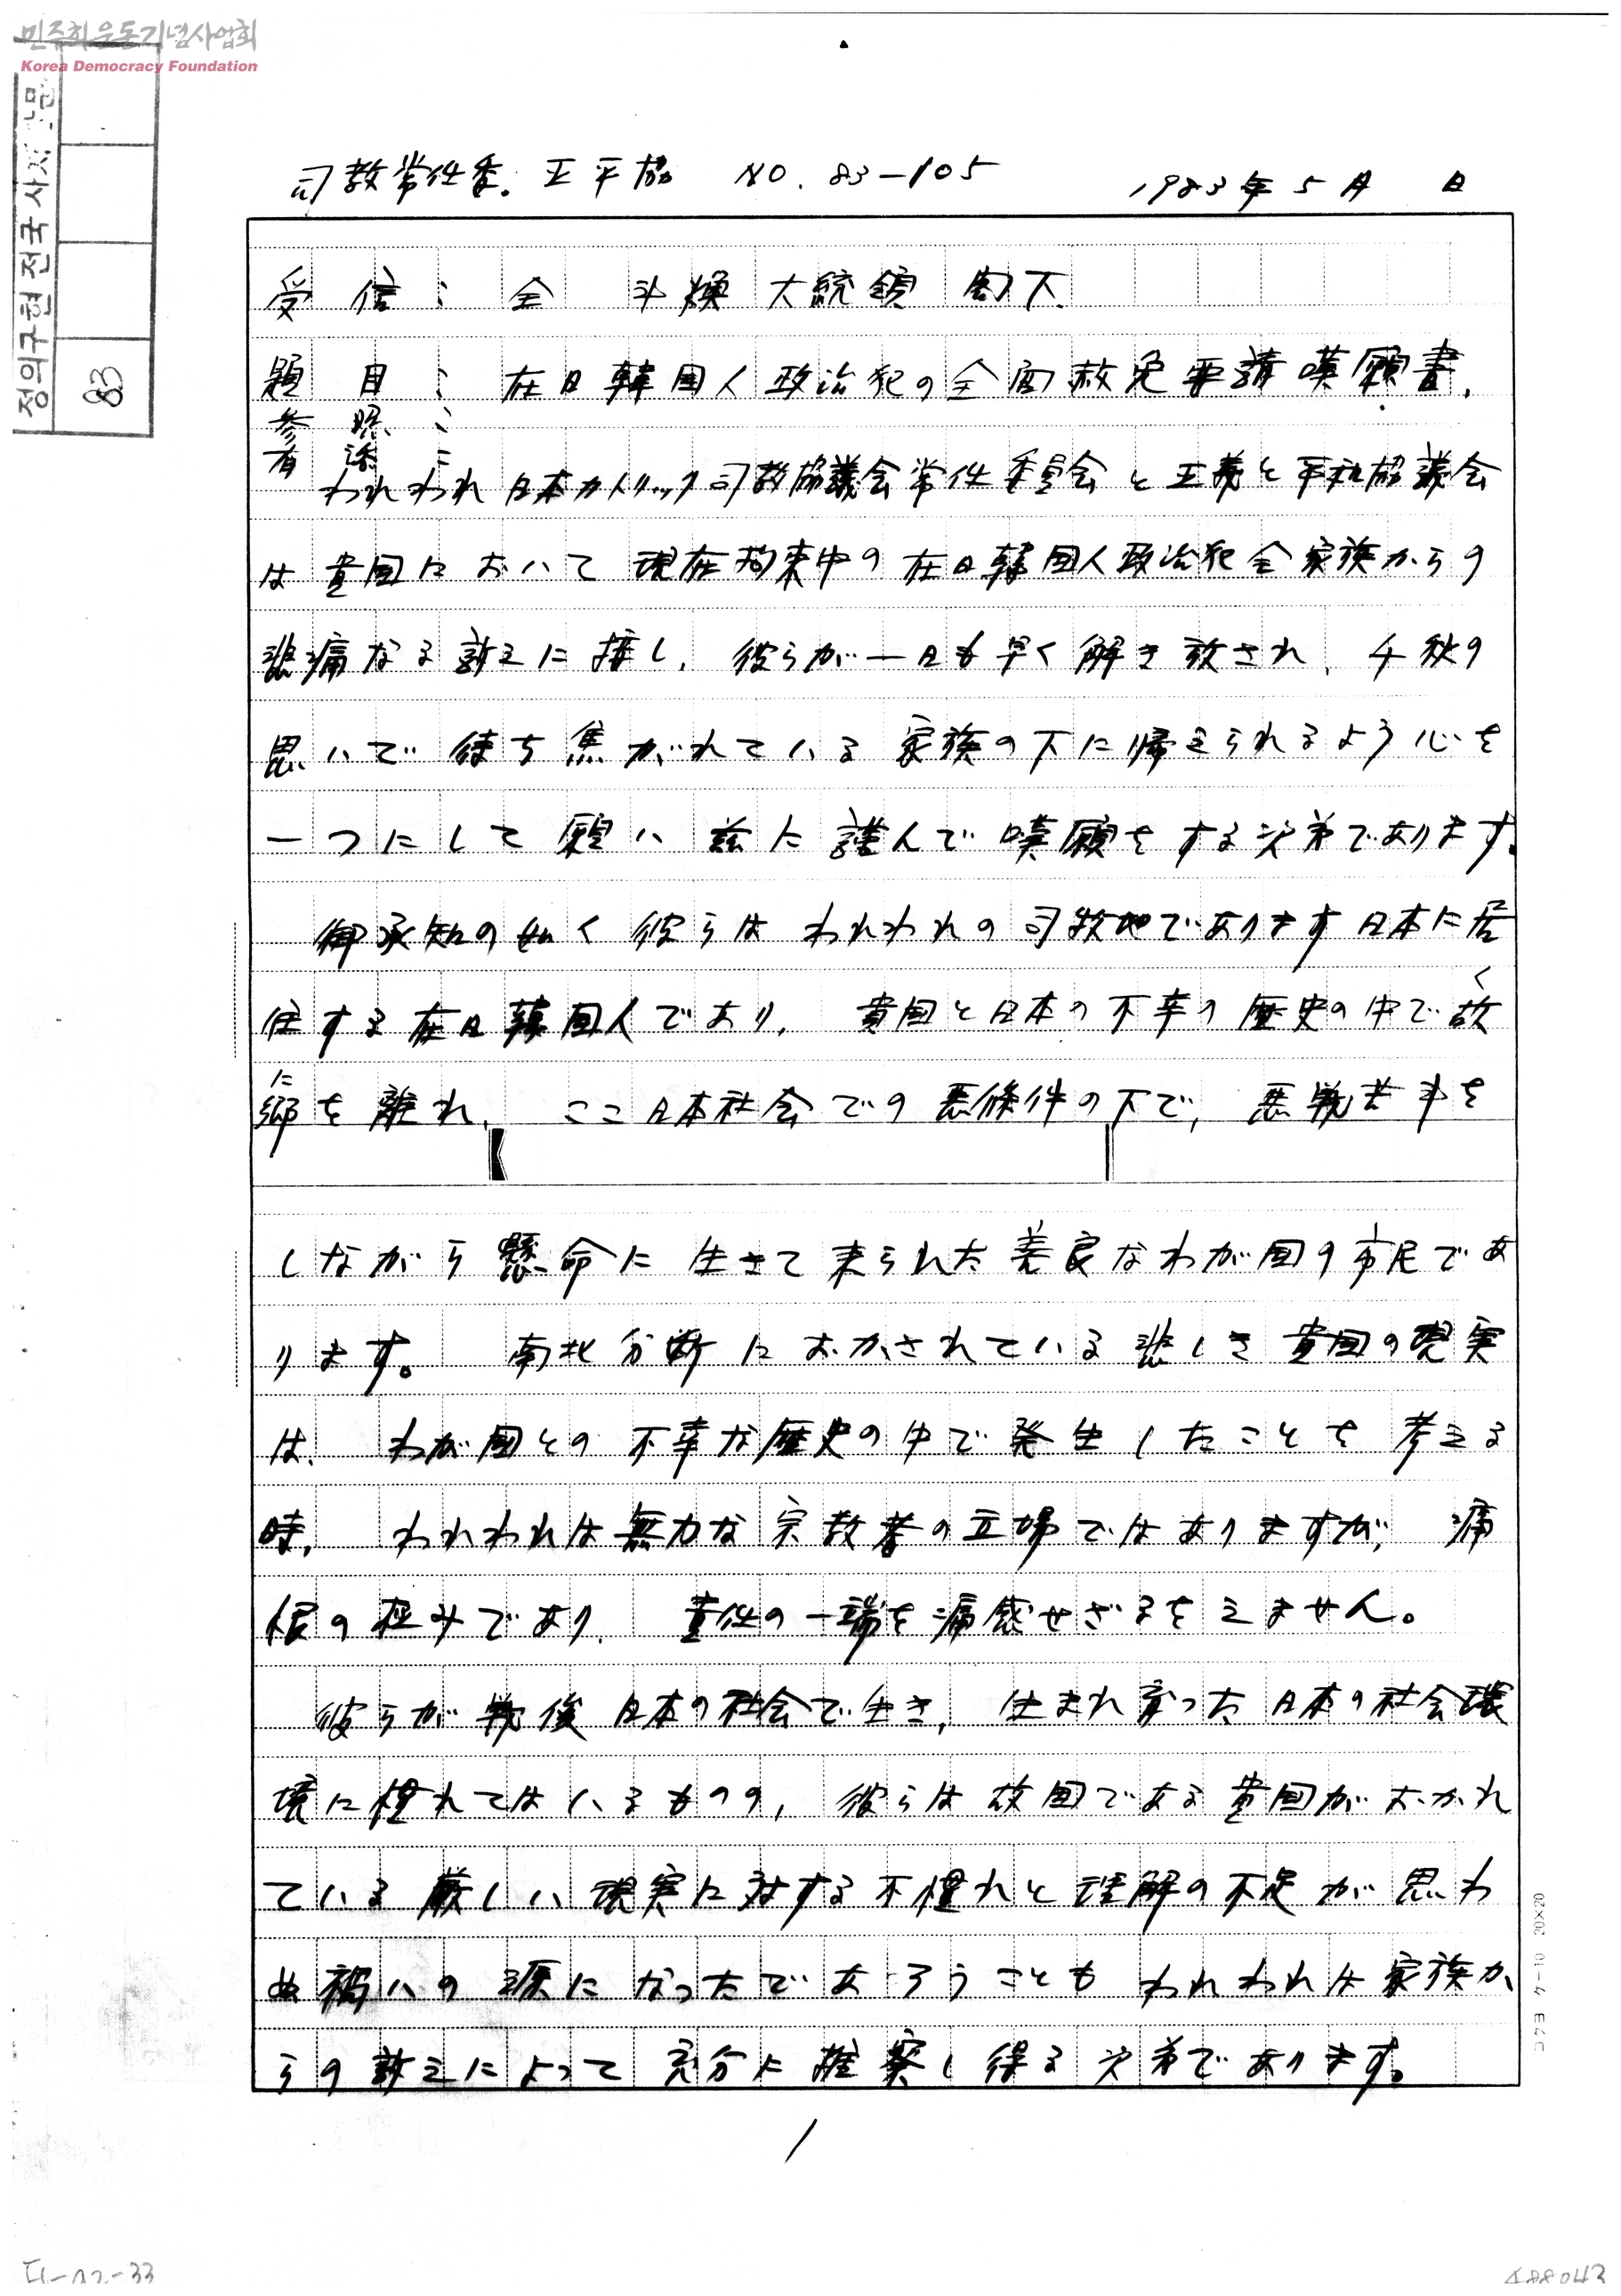 민주화운동기념사업회
Korea Democracy Foundation
정의구현전국사제단
83
司教常任委. 正平協 NO. 83-105 1983年5月 日
受信: 全 斗煥 大統領 閣下.
題目: 在日韓国人政治犯の全面赦免要請嘆願書.
参照:
われわれ日本カトリック司教協議会常任委員会と正義と平和協議会
は貴国において現在拘束中の在日韓国人政治犯全家族からの
悲痛なる訴えに接し、彼らが一日も早く解き放され、千秋の
思いで待ち焦がれている家族の下に帰えられるよう心を
一つにして願い茲に謹んで嘆願をする次第であります。
御承知の如く彼らはわれわれの司教地であります日本に居
住する在日韓国人であり、貴国と日本の不幸の歴史の中で故
く
に
郷を離れ、ここ日本社会での悪條件の下で、悪戦苦斗を
しながら懸命に生きて来られた善良なわが国の市民であ
ります。 南北分断におかされている悲しき貴国の現実
は、わが国との不幸な歴史の中で発生したことを考える
時、われわれは無力な宗教者の立場ではありますが、痛
恨の極みであり、責任の一端を痛感せざるをえません。
彼らが戦後日本の社会で生き、生まれ育った日本の社会環
境に慣れてはいるものの、彼らは故国である貴国がおかれ
ている厳しい現実に対する不慣れと理解の不足が思わ
ぬ禍いの源になったであろうことも われわれは家族か
らの訴えによって充分に推察し得る次第であります。
コクヨ ケ-10 20×20
1